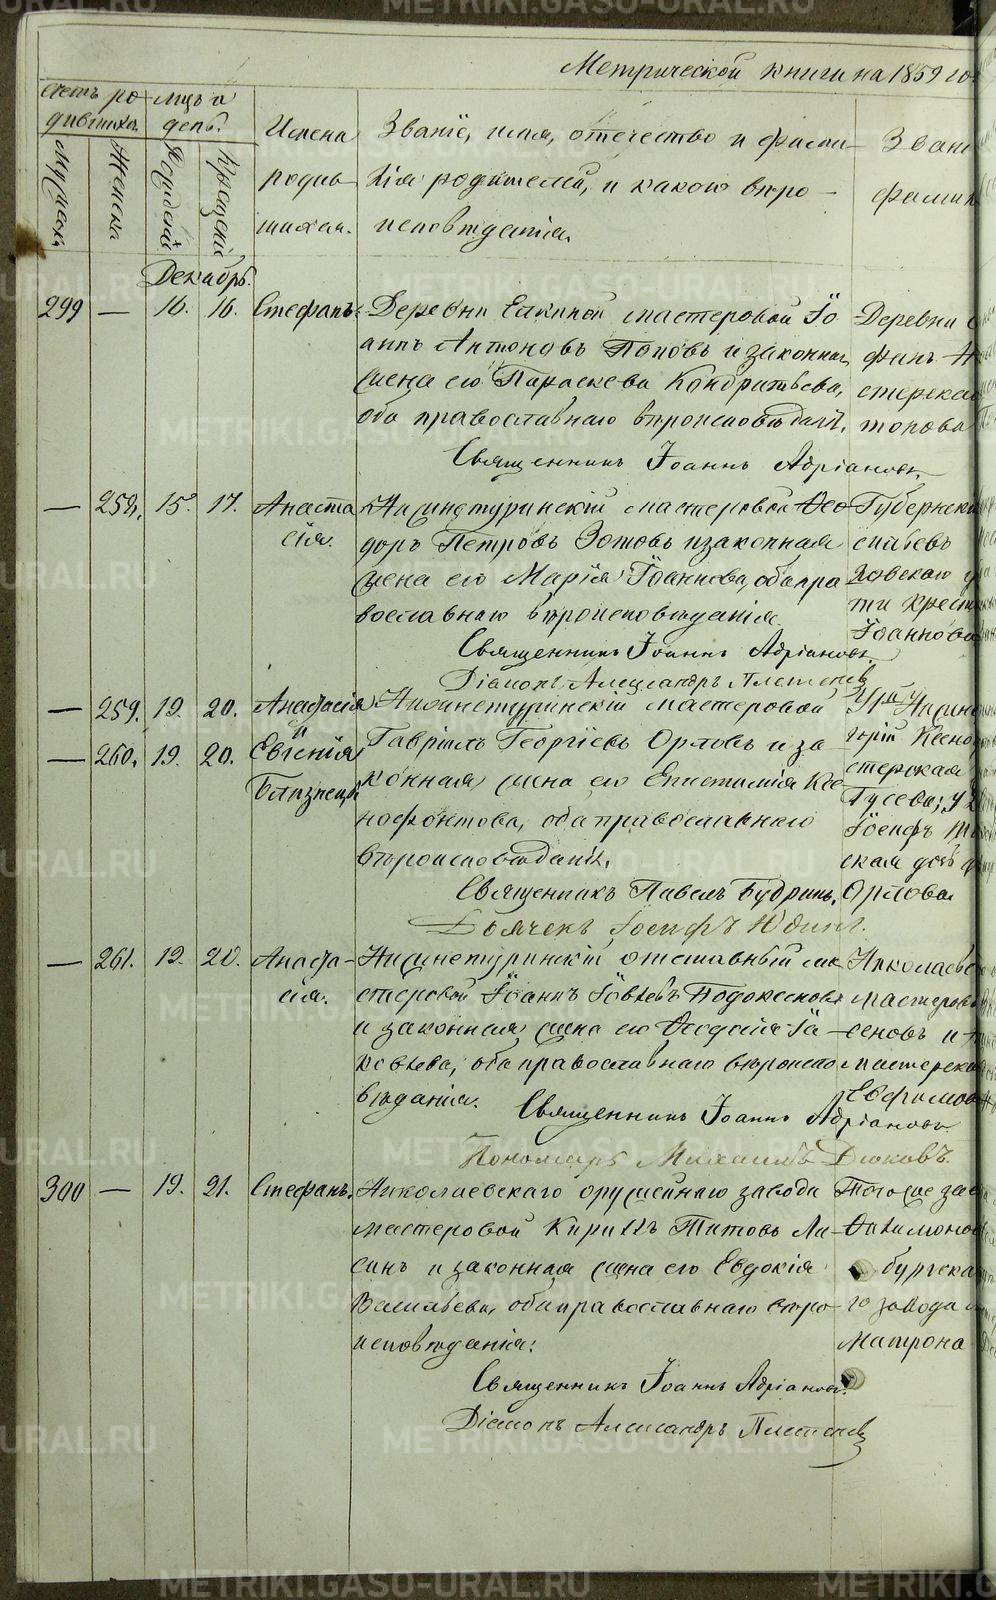 Метрической книги на 1859 го
Счетъ ро
дившихся.
Мцъ и
день.
Мужеска
Женска
Рожденiй
Крещенiй
Имена
родив
шихся.
Званiе, имя, отечество и фами
лiя родителей, и какого веро-
исповѣданiя.
Зван
фамил
Декабрь.
299 — 16. 16. Стефанъ.
Деревни Елкиной мастеровой Iо
аннъ Антоновъ Поповъ и законная
жена его Параскева Кондратьева,
оба православнаго вѣроисповѣданiя.
Священникъ Iоаннъ Адрiановъ.
Деревни
фанъ
стерска
попова
— 258. 15. 17. Анаста
сiя.
Нижнетуринскiй мастеровой Ѳео
доръ Петровъ Зотовъ и законная
жена его Марiя Iоаннова, оба пра
вославнаго вѣроисповѣданiя.
Священникъ Iоаннъ Адрiановъ.
Дiаконъ Александръ Плетенев
Губернск
сильевъ
ховскаго
ти крест
Iоаннова
— 259. 19. 20. Анастасiя
и
— 260. 19. 20. Евгенiя
Близнецы
Нижнетуринскiй мастеровой
Гаврiилъ Георгiевъ Орловъ и за
конная жена его Епистимiя Ксе
нофонтова, оба православнаго
вѣроисповѣданiя.
Священникъ Павелъ Будринъ.
Дьячекъ Iосифъ Юдинъ.
У 1й Нижне
горiй Ксено
стерская
Гусева; у 2
Iосифъ
ская дочь
Орлова
— 261. 19. 20. Анаста-
сiя.
Нижнетуринскiй отставный ма
стеровой Iоаннъ Iовлевъ Подокеновъ
и законная жена его Ѳеодосiя Iа
ковлева, оба православнаго вѣроиспо
вѣданiя.
Священникъ Iоаннъ Адрiановъ.
Пономарь Михаилъ Дюковъ.
Николаевс
мастеров
сеновъ и
мастерска
Евфимов
300 — 19. 21. Стефанъ.
Николаевскаго оружейнаго завода
мастеровой Кириллъ Титовъ Ла-
синъ и законная жена его Евдокiя
Васильева, оба православнаго вѣро
исповѣданiя.
Священникъ Iоаннъ Адрiановъ.
Дiаконъ Александръ Плетенев
Того же зав
Филимонов
бургска
го завода
Матрона
METRIKI.GASO-URAL.RU